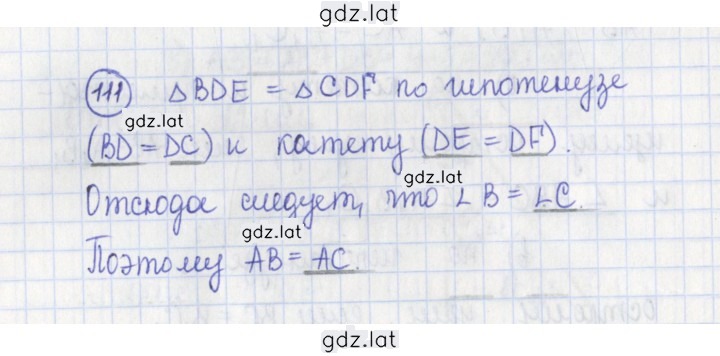 gdz.lat
111 △BDE = △CDF по гипотенузе
gdz.lat
(BD = DC) и катету (DE = DF).
gdz.lat
Отсюда следует, что ∠B = ∠C.
gdz.lat
Поэтому AB = AC.
gdz.lat